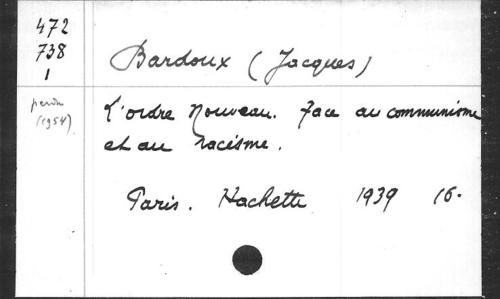 472
738
1
Bardoux (Jacques)
perdu
(1954)
L'ordre Nouveau. Face au communisme
et au racisme.
Paris. Hachette 1939 16.